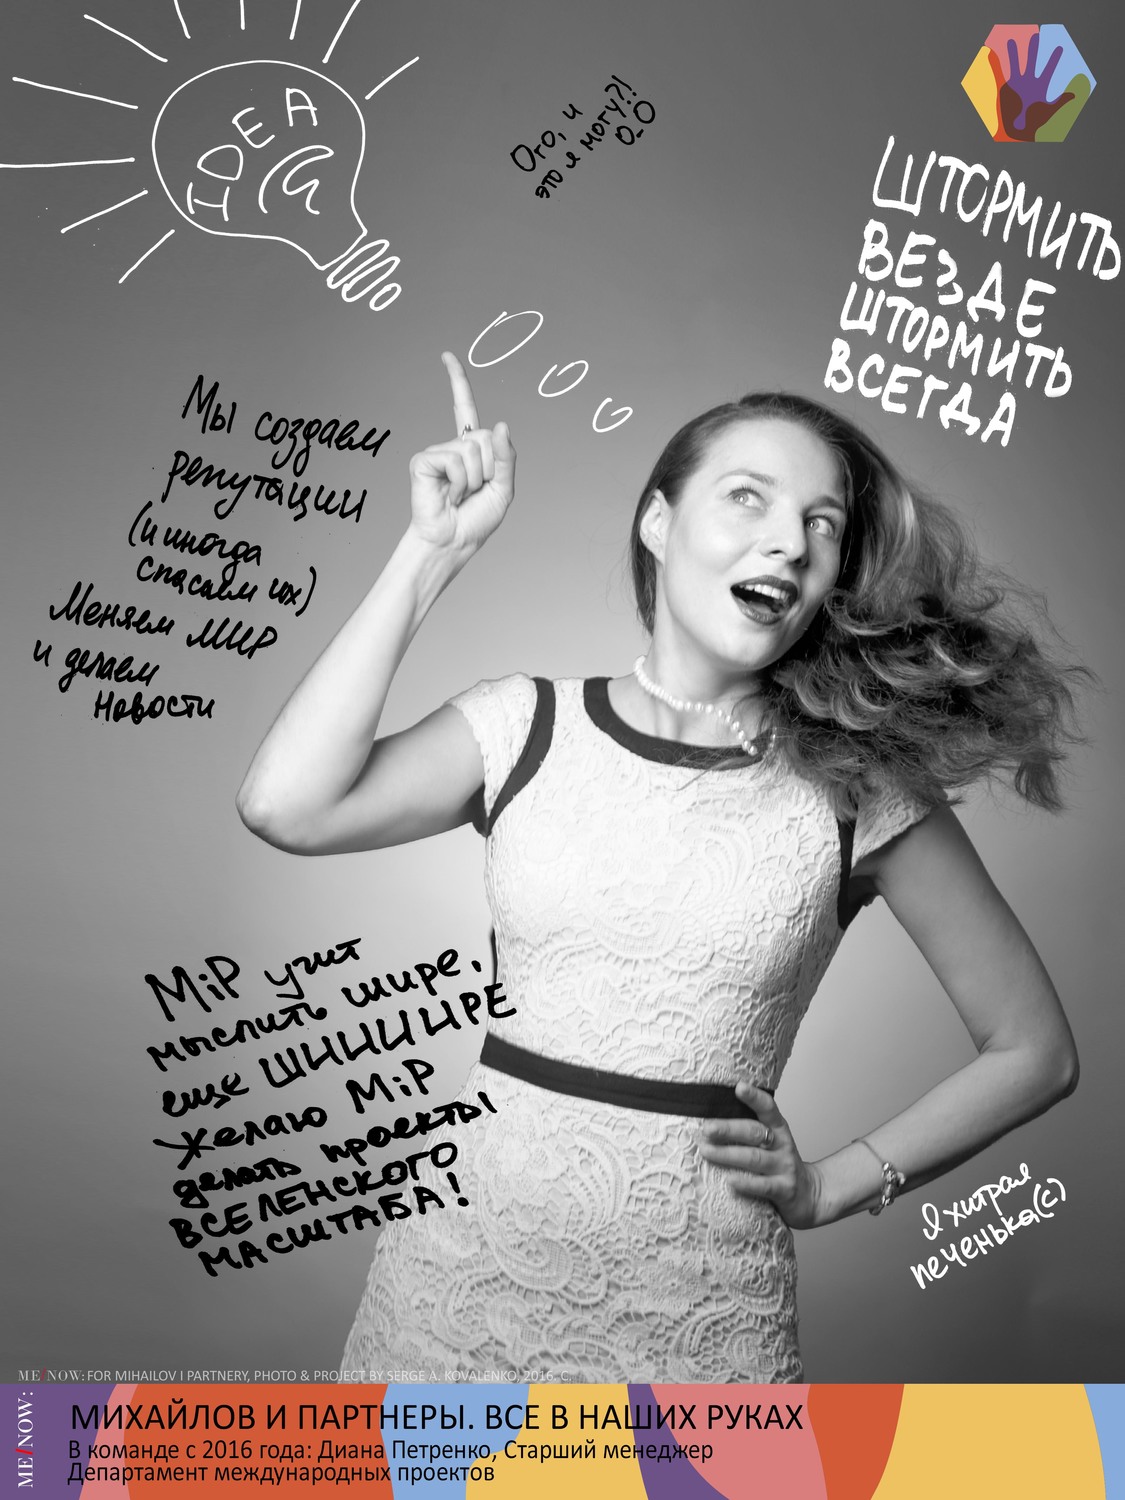 IDEA
Ого, и
это я могу?!
О_О
ШТОРМИТЬ
ВЕЗДЕ
ШТОРМИТЬ
ВСЕГДА
Мы создаем
репутации
(и иногда
спасаем их)
Меняем МИР
и делаем
Новости
MiP учит
мыслить шире,
еще ШИИИИРЕ
Желаю MiP
делать проекты
ВСЕЛЕНСКОГО
МАСШТАБА!
Я хитрая
печенька(с)
ME/NOW: FOR MIHAILOV I PARTNERY, PHOTO & PROJECT BY SERGE A. KOVALENKO, 2016. C.
ME/NOW:
МИХАЙЛОВ И ПАРТНЕРЫ. ВСЕ В НАШИХ РУКАХ
В команде с 2016 года: Диана Петренко, Старший менеджер
Департамент международных проектов